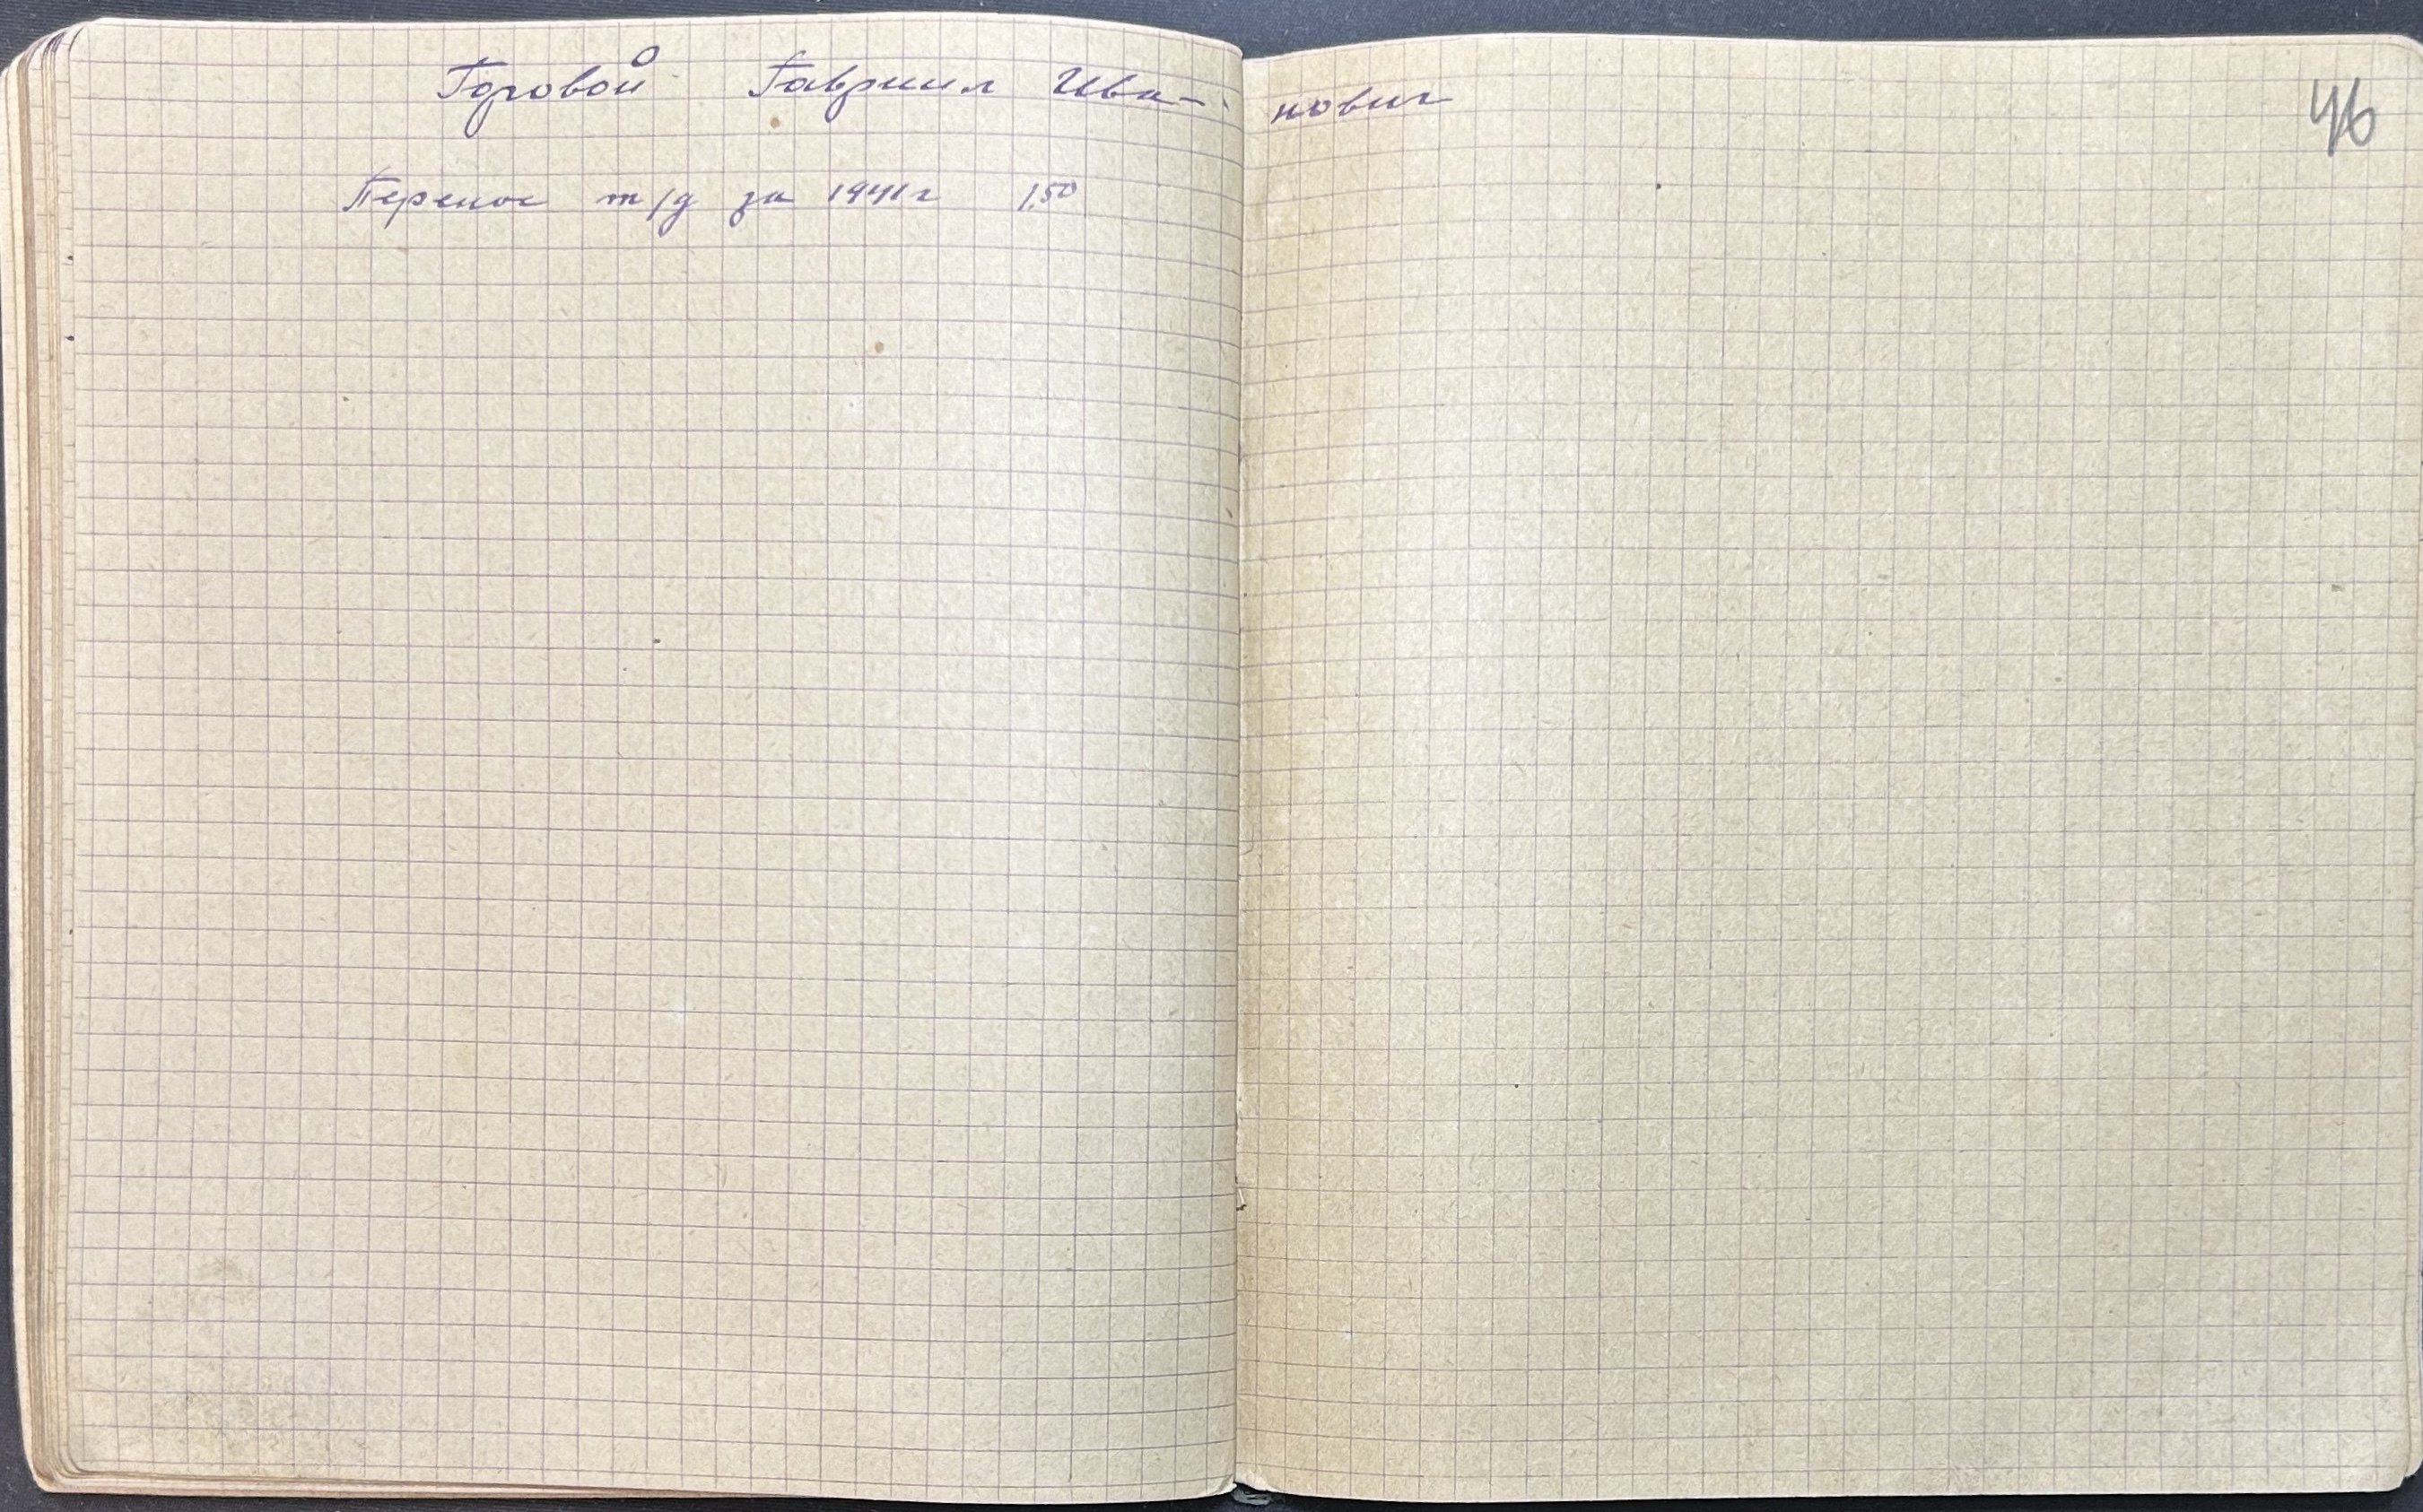 Горовой Гавриил Ива- нович
46
Перенос т/д за 1941г 1,50